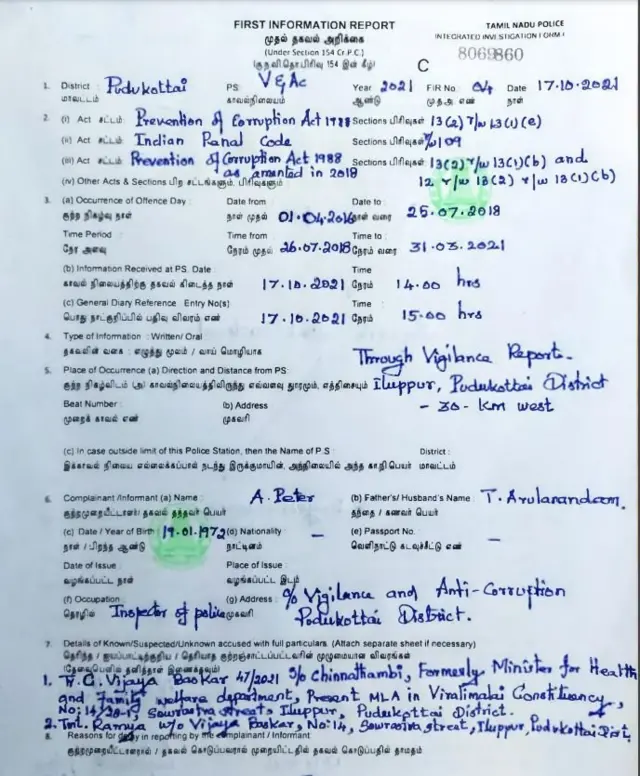 FIRST INFORMATION REPORT
TAMIL NADU POLICE
முதல் தகவல் அறிக்கை
INTEGRATED INVESTIGATION FORM-I
(Under Section 154 Cr.P.C.)
(கு.வி.தொ.பிரிவு 154 இன் கீழ்)
C
8069860
1. District : Pudukottai PS V&Ac Year 2021 FIR No. 04 Date 17.10.2021
மாவட்டம் காவல்நிலையம் ஆண்டு மு.த.அ. எண் நாள்
2. (i) Act சட்டம் Prevention of Corruption Act 1988 Sections பிரிவுகள் 13(2) r/w 13(1)(e)
(ii) Act சட்டம் Indian Penal Code Sections பிரிவுகள் u/109
(iii) Act சட்டம் Prevention of Corruption Act 1988 Sections பிரிவுகள் 13(2) r/w 13(1)(b) and
as amanted in 2018
(iv) Other Acts & Sections பிற சட்டங்களும், பிரிவுகளும் 12 r/w 13(2) r/w 13(1)(b)
3. (a) Occurrence of Offence Day : Date from Date to :
குற்ற நிகழ்வு நாள் நாள் முதல் 01.04.2016 நாள் வரை 25.07.2018
Time Period : Time from Time to :
நேர அளவு நேரம் முதல் 26.07.2018 நேரம் வரை 31.03.2021
(b) Information Received at PS. Date Time
காவல் நிலையத்திற்கு தகவல் கிடைத்த நாள் 17.10.2021 நேரம் 14.00 hrs
(c) General Diary Reference : Entry No(s) Time :
பொது நாட்குறிப்பில் பதிவு விவரம் எண் 17.10.2021 நேரம் 15.00 hrs
4. Type of Information : Written/ Oral
தகவலின் வகை : எழுத்து மூலம் / வாய் மொழியாக Through Vigilance Report.
5. Place of Occurrence (a) Direction and Distance from PS:
குற்ற நிகழ்விடம் (அ) காவல்நிலையத்திலிருந்து எவ்வளவு தூரமும், எத்திசையும் Iluppur, Pudukottai District
Beat Number : (b) Address - 30- Km west
முறைக் காவல் எண் முகவரி
(c) In case outside limit of this Police Station, then the Name of P.S : District :
இக்காவல் நிலைய எல்லைக்கப்பால் நடந்து இருக்குமாயின், அந்நிலையில் அந்த கா.நி.பெயர் மாவட்டம்
6. Complainant /Informant (a) Name : A. Peter (b) Father's/ Husband's Name : T. Arulanandam.
குற்றமுறையீட்டாளர்/ தகவல் தந்தவர் பெயர் தந்தை / கணவர் பெயர்
(c) Date / Year of Birth : 19.01.1972 (d) Nationality - (e) Passport No. -
நாள் / பிறந்த ஆண்டு நாட்டினம் வெளிநாட்டு கடவுச்சீட்டு எண்
Date of Issue Place of Issue
வழங்கப்பட்ட நாள் வழங்கப்பட்ட இடம்
(f) Occupation : (g) Address : o/o Vigilance and Anti-Corruption
தொழில் Inspector of police முகவரி Pudukottai District.
7. Details of Known/Suspected/Unknown accused with full particulars. (Attach separate sheet if necessary)
தெரிந்த / ஐயப்பாட்டிற்குரிய / தெரியாத குற்றஞ்சாட்டப்பட்டவரின் முழுமையான விவரங்கள்
(தேவையெனில் தனித்தாள் இணைக்கவும்)
1. Tr. C. Vijaya Baskar 47/2021 S/o Chinnathambi, Formerly Minister for Health
and Family welfare department, Present MLA in Viralimalai Constituency,
No: 14, Sourastra street, Iluppur, Pudukottai District.
2. Tmt. Ramya w/o Vijaya Baskar, No: 14, Sourastra street, Iluppur, Pudukottai Dist.
8. Reasons for delay in reporting by the complainant / Informant
குற்றமுறையீட்டாளரால் / தகவல் கொடுப்பவரால் முறையீட்டதில் தகவல் கொடுப்பதில் தாமதம்